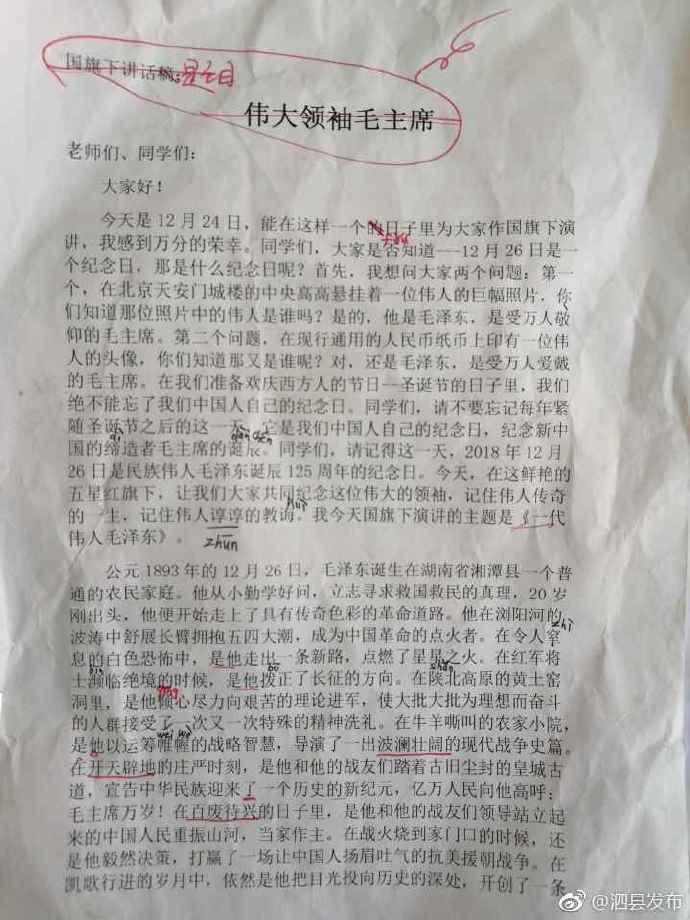 国旗下讲话稿:
伟大领袖毛主席
老师们、同学们:
大家好!
今天是12月24日,能在这样一个的日子里为大家作国旗下演
讲,我感到万分的荣幸。同学们,大家是否知道---12月26日是一
个纪念日,那是什么纪念日呢?首先,我想问大家两个问题:第一
个,在北京天安门城楼的中央高高悬挂着一位伟人的巨幅照片,你
们知道那位照片中的伟人是谁吗?是的,他是毛泽东,是受万人敬
仰的毛主席。第二个问题,在现行通用的人民币纸币上印有一位伟
人的头像,你们知道那又是谁呢?对,还是毛泽东,是受万人爱戴
的毛主席。在我们准备欢庆西方人的节日—圣诞节的日子里,我们
绝不能忘了我们中国人自己的纪念日。同学们,请不要忘记每年紧
随圣诞节之后的这一天,它是我们中国人自己的纪念日,纪念新中
dì dàn dàn
国的缔造者毛主席的诞辰。同学们,请记得这一天,2018年12月
26日是民族伟人毛泽东诞辰125周年的纪念日。今天,在这鲜艳的
五星红旗下,让我们大家共同纪念这位伟大的领袖,记住伟人传奇
huì
的一生,记住伟人谆谆的教诲。我今天国旗下演讲的主题是《一代
伟人毛泽东》。
zhūn
公元1893年的12月26日,毛泽东诞生在湖南省湘潭县一个普
通的农民家庭。他从小勤学好问,立志寻求救国救民的真理,20岁
刚出头,他便开始走上了具有传奇色彩的革命道路。他在浏阳河的
波涛中舒展长臂拥抱五四大潮,成为中国革命的点火者。在令人窒
zhì
息的白色恐怖中,是他走出一条新路,点燃了星星之火。在红军将
bīn bō shǎn
士濒临绝境的时候,是他拨正了长征的方向。在陕北高原的黄土窑
洞里,是他倾心尽力向艰苦的理论进军,使大批大批为理想而奋斗
的人群接受了一次又一次特殊的精神洗礼。在牛羊嘶叫的农家小院,
wéi wò
是他以运筹帷幄的战略智慧,导演了一出波澜壮阔的现代战争史篇。
在开天辟地的庄严时刻,是他和他的战友们踏着古旧尘封的皇城古
道,宣告中华民族迎来了一个历史的新纪元,亿万人民向他高呼:
毛主席万岁!在百废待兴的日子里,是他和他的战友们领导站立起
来的中国人民重振山河,当家作主。在战火烧到家门口的时候,还
是他毅然决策,打赢了一场让中国人扬眉吐气的抗美援朝战争。在
凯歌行进的岁月中,依然是他把目光投向历史的深处,开创了一条
@泗县发布